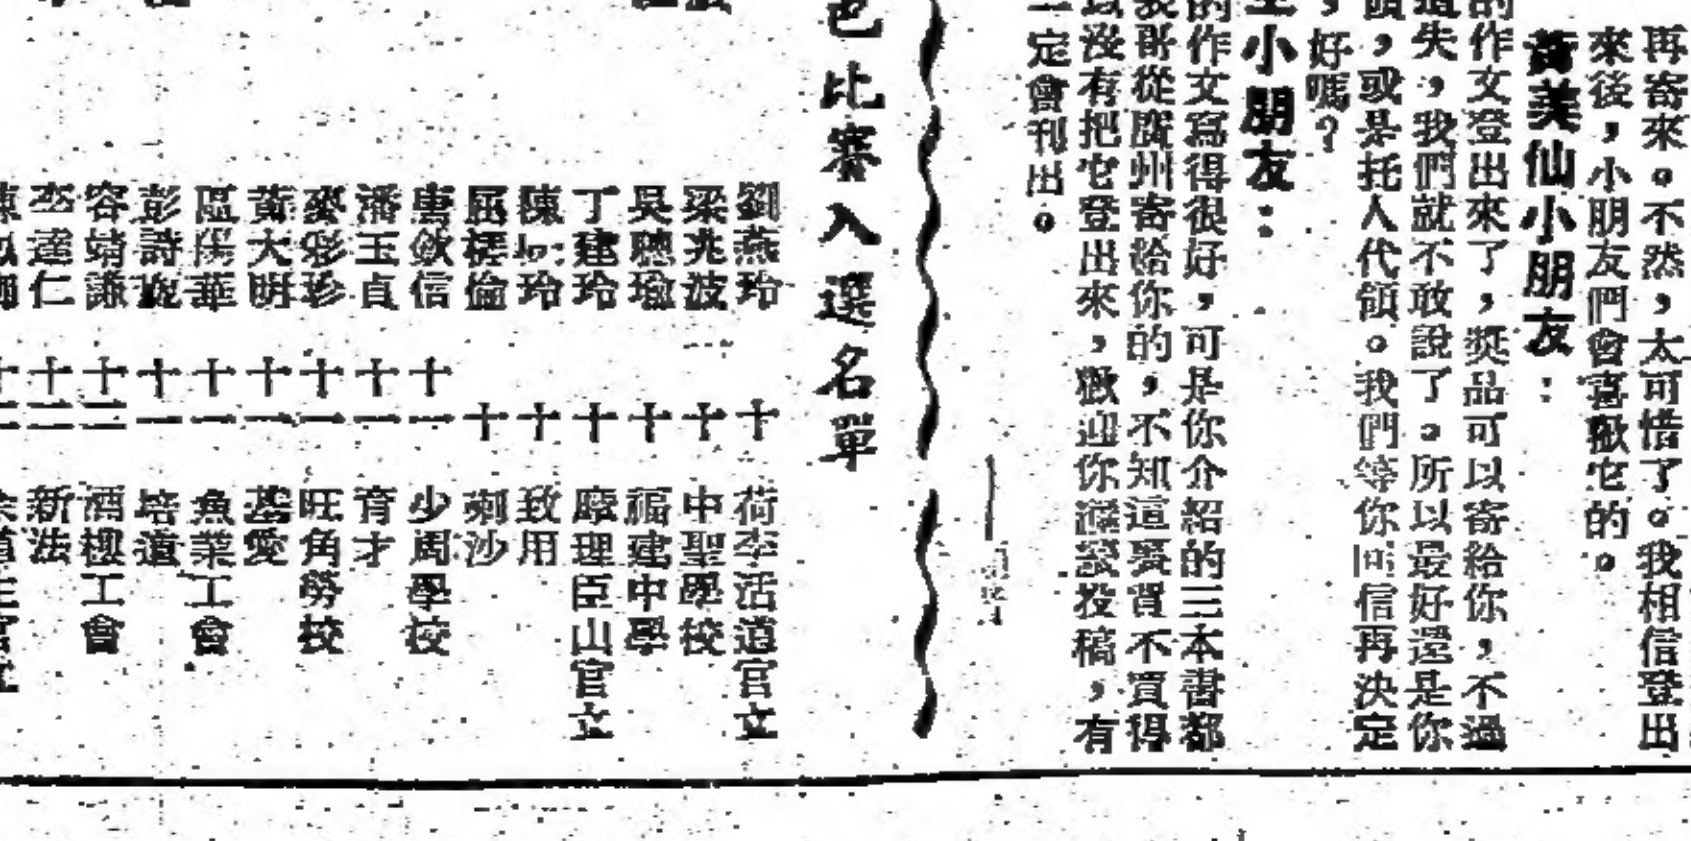 再寄來。不然，太可惜了。我相信登出
來後，小朋友們會喜歡它的。
黃美仙小朋友：
的作文登出來了，獎品可以寄給你，不過
遺失，我們就不敢說了。所以最好還是你
，或是托人代領。我們等你回信再決定
，好嗎？
小朋友：
的作文寫得很好，可是你介紹的三本書都
哥從廣州寄給你的，不知這裏買不買得
沒有把它登出來，歡迎你繼續投稿，有
一定會刊出。
色比賽入選名單
劉燕玲 十 荷李活道官立
梁兆波 十 中聖學校
吳聰瑜 十 福建中學
丁建玲 十 摩理臣山官立
陳 玲 十 致用
屈 倫 十 喇沙
唐歛信 十一 少周學校
潘玉貞 十一 育才
麥彩珍 十一 旺角勞校
黃大明 十一 慈愛
區 華 十一 魚業工會
彭詩 十一 培道
容靖謙 十二 酒樓工會
李達仁 十二 新法